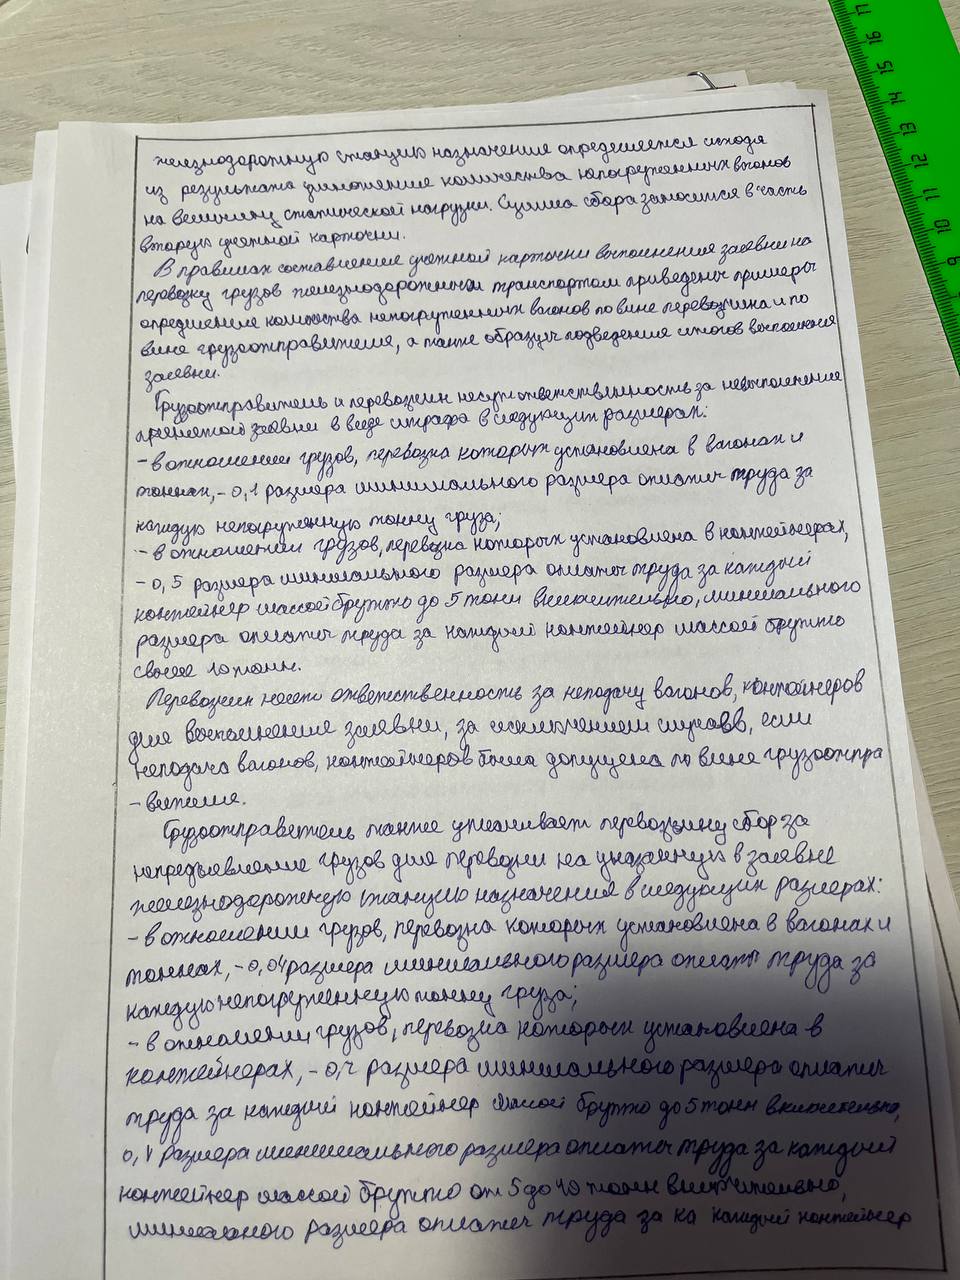 железнодорожную станцию назначения определяется исходя
из результата умножение количества непогруженных вагонов
на величину статической нагрузки. Сумма сбора заносится в часть
вторую учетной карточки.
В правилах составление учетной карточки выполнения заявки на
перевозку грузов железнодорожным транспортом приведены примеры
определение количества непогруженных вагонов по вине перевозчика и по
вине грузоотправителя, а также образцы подведения итогов выполнения
заявки.
Грузоотправитель и перевозчик несут ответственность за невыполнение
принятой заявки в виде штрафа в следующих размерах:
- в отношении грузов, перевозка которых установлена в вагонах и
тоннах, - 0,1 размера минимального размера оплаты труда за
каждую непогруженную тонну груза;
- в отношении грузов, перевозка которых установлена в контейнерах,
- 0,5 размера минимального размера оплаты труда за каждый
контейнер массой брутто до 5 тонн включительно, минимального
размера оплаты труда за каждый контейнер массой брутто
свыше 10 тонн.
Перевозчик несет ответственность за неподачу вагонов, контейнеров
для выполнения заявки, за исключением случаев, если
неподача вагонов, контейнеров была допущена по вине грузоотпра
- вителя.
Грузоотправитель также уплачивает перевозчику сбор за
непредъявление грузов для перевозки на указанную в заявке
железнодорожную станцию назначения в следующих размерах:
- в отношении грузов, перевозка которых установлена в вагонах и
тоннах, - 0,04 размера минимального размера оплаты труда за
каждую непогруженную тонну груза;
- в отношении грузов, перевозка которых установлена в
контейнерах, - 0,2 размера минимального размера оплаты
труда за каждый контейнер массой брутто до 5 тонн включительно,
размера минимального размера оплаты труда за каждый
контейнер массой брутто от 5 до 10 тонн включительно,
минимального размера оплаты труда за ка каждый контейнер
17
16
15
14
13
12
11
10
9